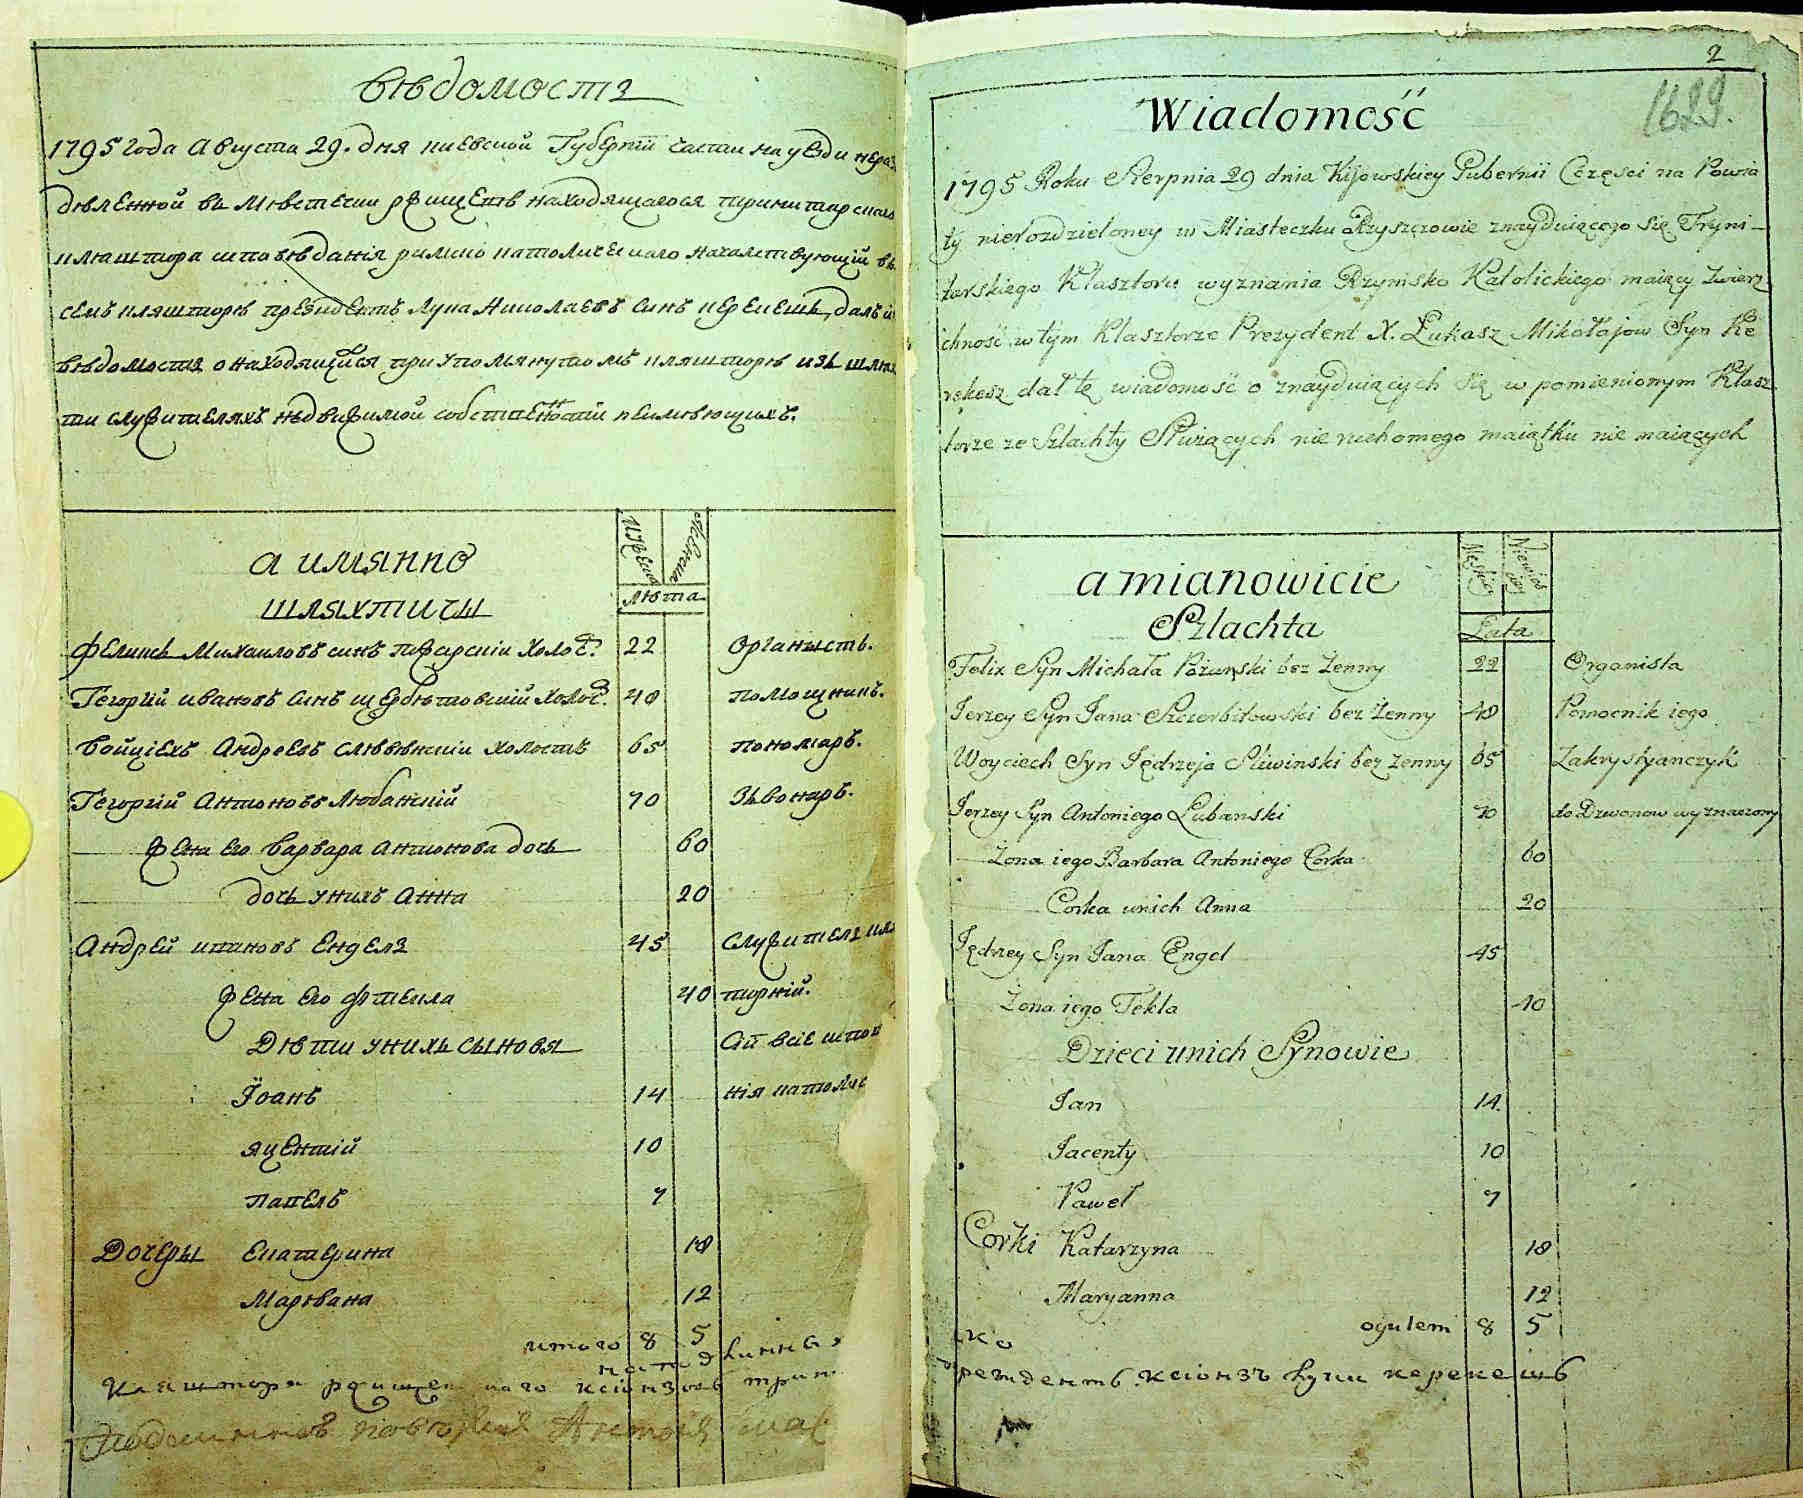 Вѣдомость
1795 года августа 29. дня киевской Губерніи части на уезди нераз
дѣленной въ мѣстечки ржищевѣ находящагося тринитарскаго
кляштора исповѣданія римско католическаго началствующій въ
семъ кляшторѣ президентъ Лука Николаевъ синъ керекешь, далъ
вѣдомостя о находящихся при упомянутомъ кляшторѣ изъ шлях
ти служителяхъ недвижимой собственности неимѣющихъ.
а имянно
шляхтичы
мужеска
женска
лѣта
Феликсъ Михаиловъ синъ Пожарскій Холос: 22 Органистъ.
Гегоргій ивановъ синъ щербѣтовскій Холос: 48 помощникъ.
войцѣхъ Андреевъ слѣвѣнскій холостъ 65 пономаръ.
Гегоргій Антоновъ Любанскій 70 Звонаръ.
жена его варвара антонова дочь 60
дочь унихъ Анна 20
Андрей ивановъ Енделъ 45 служителя кля
жена его фтекла 40 торній.
Дѣти унихъ сыновя
Їоанъ 14
яцентій 10
павелъ 7
Дочеры Екатерина 18
Марѣвана 12
итого 8 5
2
1629.
Wiadomość
1795 Roku Sierpnia 29 dnia Kijowskiey Gubernii Części na Powia
ty nierozdzieloney w Miasteczku Rzyszczowie znayduiącego się Tryni-
tarskiego Klasztoru wyznania Rzymsko Katolickiego maiący Zwierz
ichność w tym Klasztorze Prezydent X. Łukasz Mikołajow Syn Ke
rekesz dał tę wiadomość o znayduiących się w pomienionym Klasz
torze ze Szlachty Służących nie ruchomego maiątku nie maiących
a mianowicie
Szlachta
Męskie
Niewieście
Lata
Felix Syn Michała Pożarski bez Zenny 22 Organista
Jerzey Syn Jana Szczerbitowski bez Zenny 48 Pomocnik iego
Woyciech Syn Jędrzeja Sliwinski bez Zenny 65 Zakrystyanczyk
Jerzey Syn Antoniego Lubanski 70 do Dzwonow wyznaczony
Zona iego Barbara Antoniego Corka 60
Corka unich Anna 20
Jędrzey Syn Jana Engel 45
Zona iego Tekla 40
Dzieci unich Synowie
Jan 14
Jacenty 10
Paweł 7
Corki Katarzyna 18
Maryanna 12
ogulem 8 5
президентъ ксіонзъ Луки керекешъ